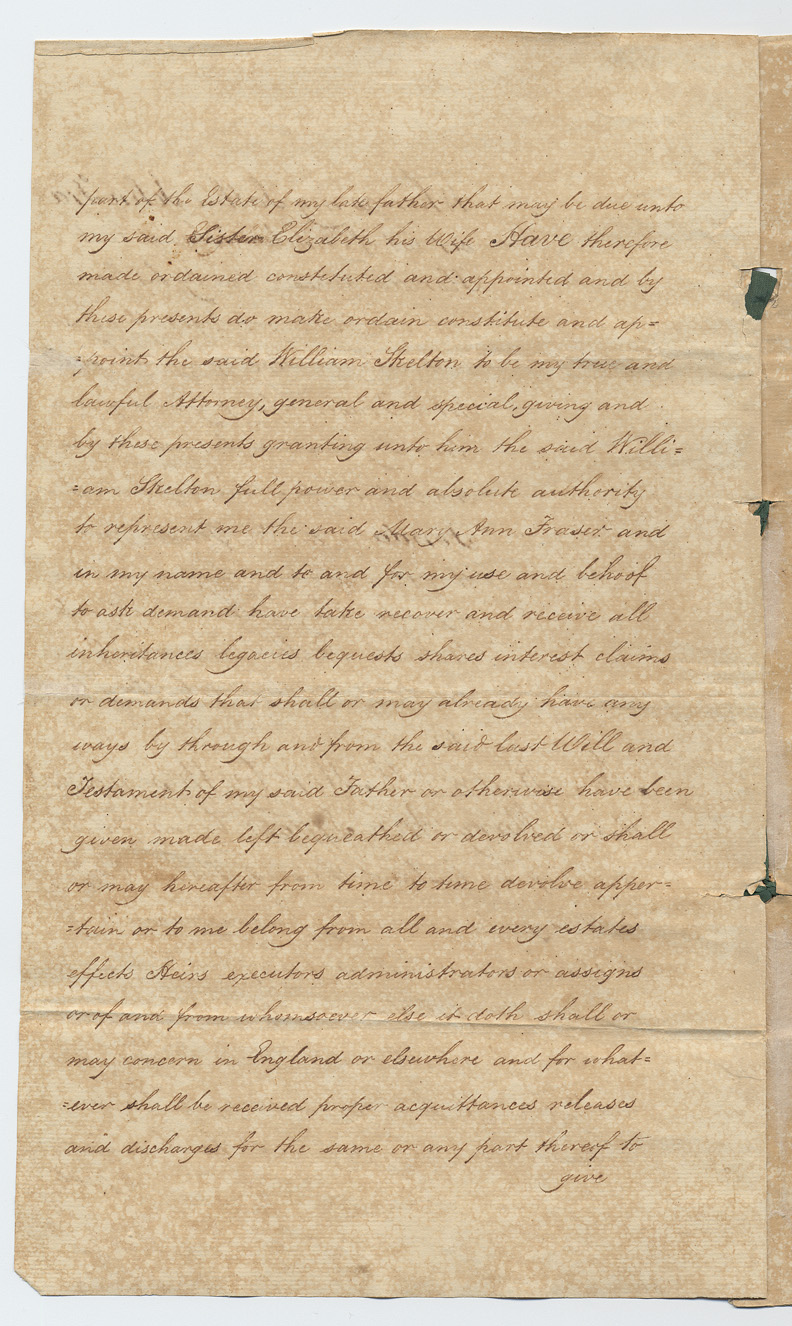 part of the Estate of my late father that may be due unto
my said Sister Elizabeth his Wife Have therefore
made ordained constituted and appointed and by
these presents do make ordain constitute and ap=
=point the said William Skelton to be my true and
lawful Attorney, general and special, giving and
by these presents granting unto him the said Willi=
=am Skelton full power and absolute authority
to represent me the said Mary Ann Fraser and
in my name and to and for my use and behoof
to ask demand have take recover and receive all
inheritances legacies bequests shares interest claims
or demands that shall or may already have any
ways by through and from the said last Will and
Testament of my said Father or otherwise have been
given made left bequeathed or devolved or shall
or may hereafter from time to time devolve apper=
=tain or to me belong from all and every estates
effects Heirs executors administrators or assigns
or of and from whomsoever else it doth shall or
may concern in England or elsewhere and for what=
=ever shall be received proper acquittances releases
and discharges for the same or any part thereof to
give